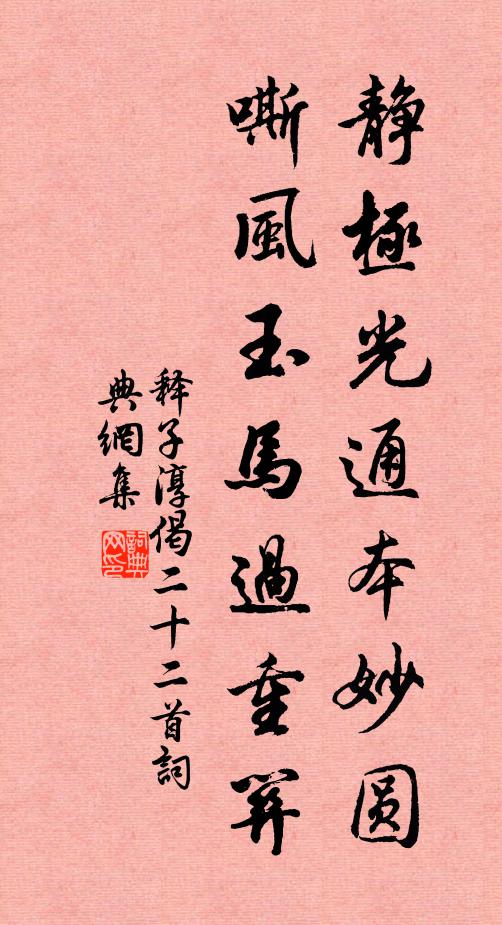 静極光通本妙圆
嘶風玉馬過重關
释子淳偈二十二首詞
典網集
詞典
网印